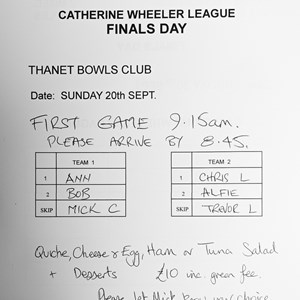 CATHERINE WHEELER LEAGUE
FINALS DAY
THANET BOWLS CLUB
Date: SUNDAY 20th SEPT.
FIRST GAME 9.15am.
PLEASE ARRIVE BY 8.45.
TEAM 1
1 ANN
2 BOB
SKIP MICK C
TEAM 2
1 CHRIS L
2 ALFIE
SKIP TREVOR L
Quiche, Cheese & Egg, Ham or Tuna Salad
+ Desserts £10 inc. green fee.
Please let Mick know your choice